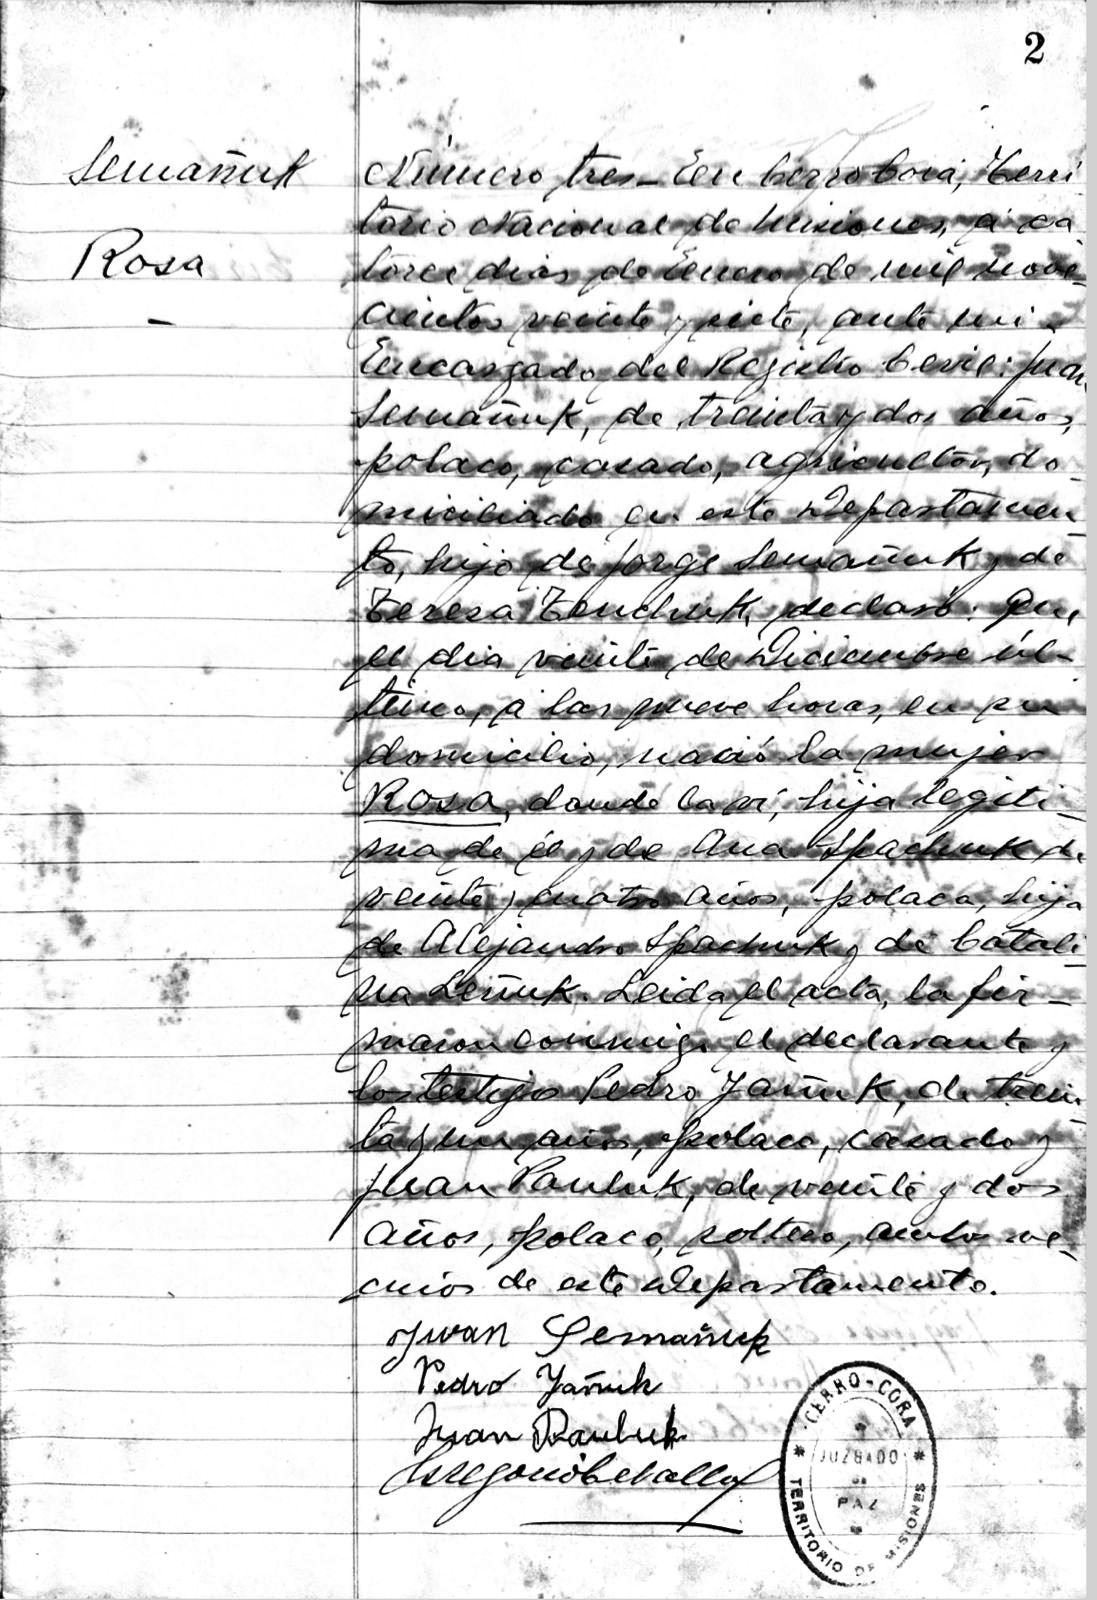 2
Semañuk
Rosa
Número tres - En Cerro Corá, Terri
torio Nacional de Misiones, á ca
torce dias de Enero de mil nove-
cientos veinte y siete, ante mi
Encargado del Rejistro Civil: Juan
Semañuk, de treinta y dos años,
polaco, casado, agricultor, do-
miciliado en este Departamen
to, hijo de Jorge Semañuk y de
Teresa Tenchuk, declaró: Que
el dia veinte de Diciembre úl-
timo, á las nueve horas, en su
domicilio, nació la mujer
Rosa, donde la ví, hija legiti-
ma de él y de Ana Spachuk de
veinte y cuatro años, polaca, hija
de Alejandro Spachuk y de Catali-
na Leñuk. Leida el acta, la fir-
maron conmigo el declarante y
los testigos Pedro Yañuk, de trein-
ta y un años, polaco, casado y
Juan Pauluk, de veinte y dos
años, polaco, soltero, ambos ve-
cinos de este Departamento.
Juan Semañuk
Pedro Yañuk
Juan Pauluk
CERRO-CORA
JUZGADO
DE
PAZ
TERRITORIO DE MISIONES